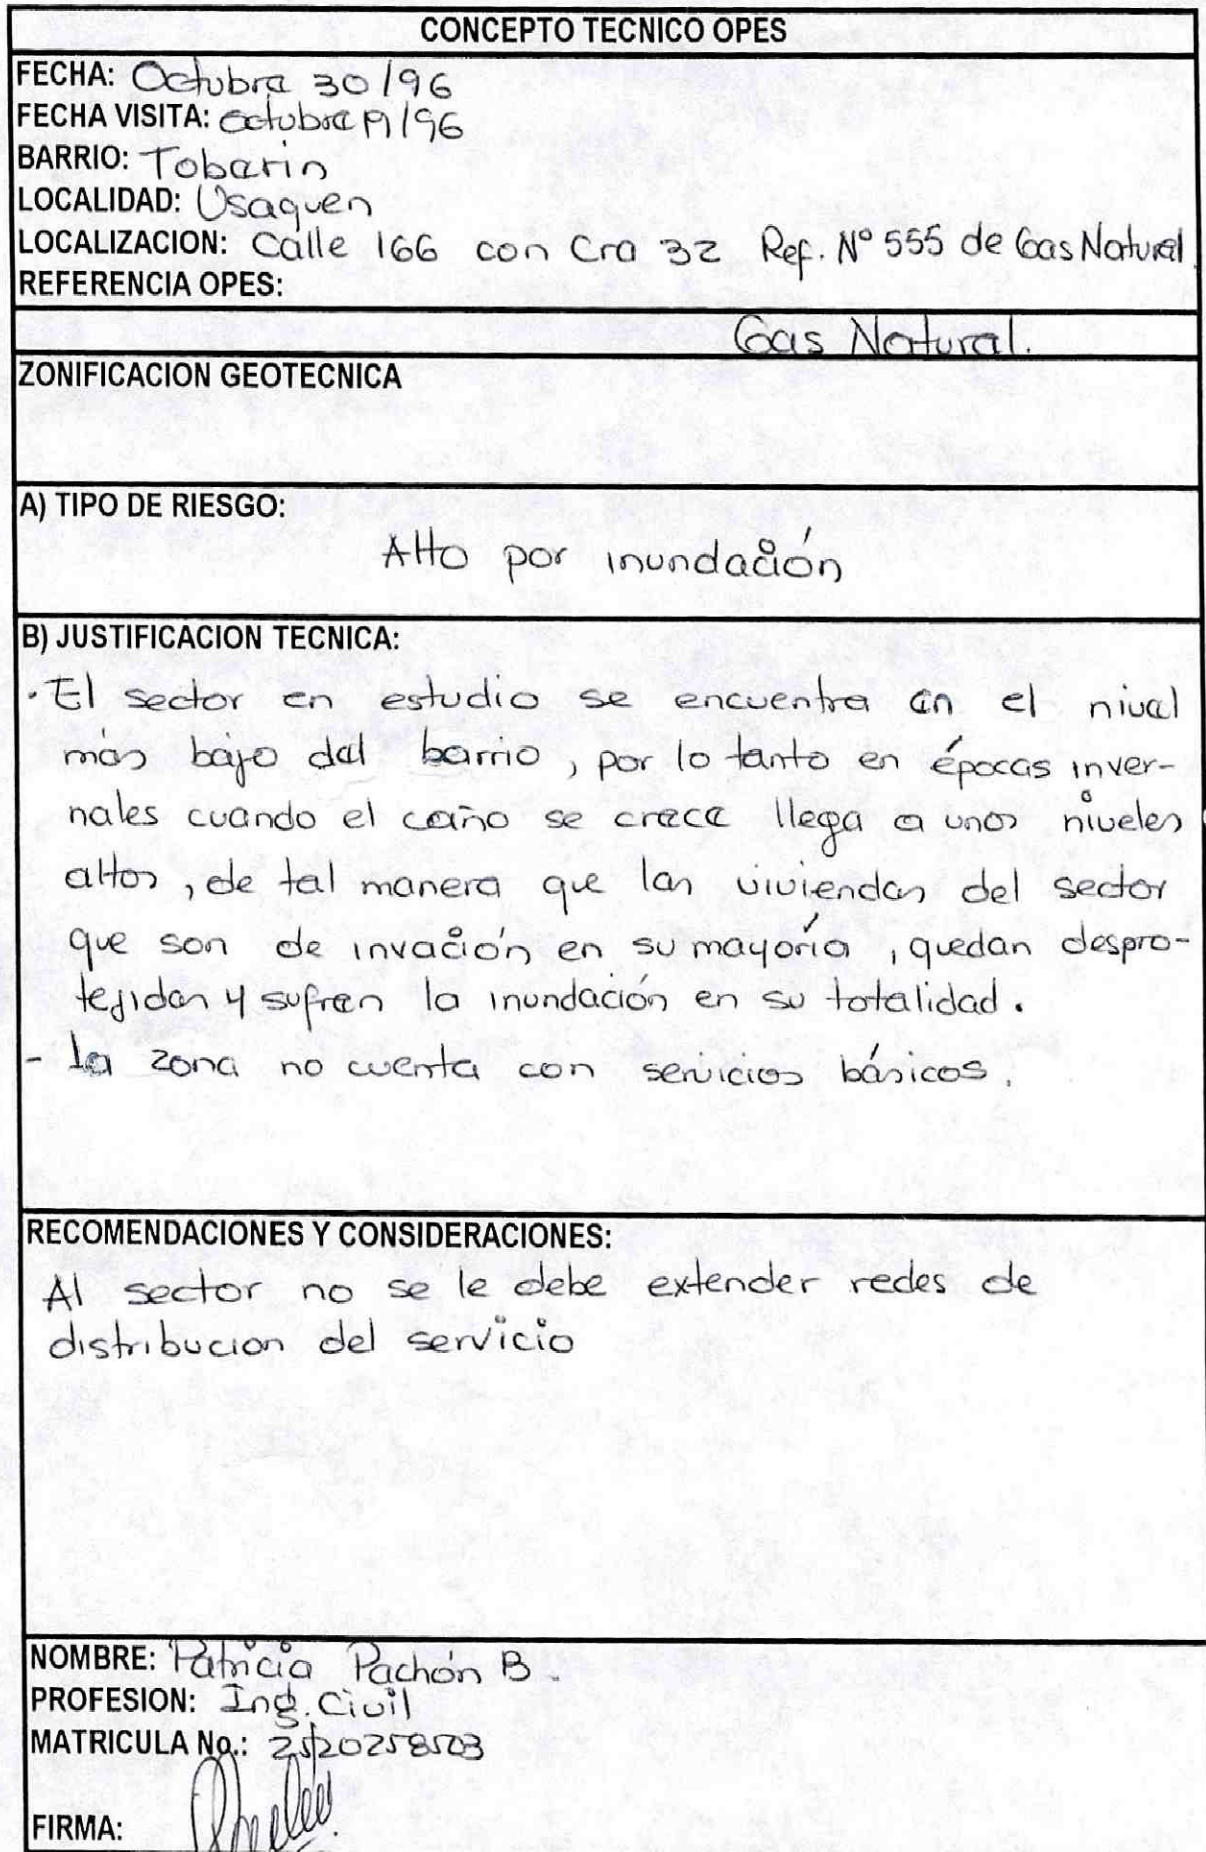 CONCEPTO TECNICO OPES
FECHA: Octubre 30/96
FECHA VISITA: Octubre 19/96
BARRIO: Toberin
LOCALIDAD: Usaquen
LOCALIZACION: Calle 166 con Cra 32 Ref. Nº 555 de Gas Natural.
REFERENCIA OPES:
Gas Natural.
ZONIFICACION GEOTECNICA
A) TIPO DE RIESGO:
Alto por inundación
B) JUSTIFICACION TECNICA:
- El sector en estudio se encuentra en el nivel
más bajo del barrio, por lo tanto en épocas inver-
nales cuando el caño se crece llega a unos niveles
altos, de tal manera que las viviendas del sector
que son de invación en su mayoría, quedan despro-
tejidas y sufren la inundación en su totalidad.
- La zona no cuenta con servicios básicos.
RECOMENDACIONES Y CONSIDERACIONES:
Al sector no se le debe extender redes de
distribucion del servicio
NOMBRE: Patricia Pachón B.
PROFESION: Ing. Civil
MATRICULA No.:
FIRMA: